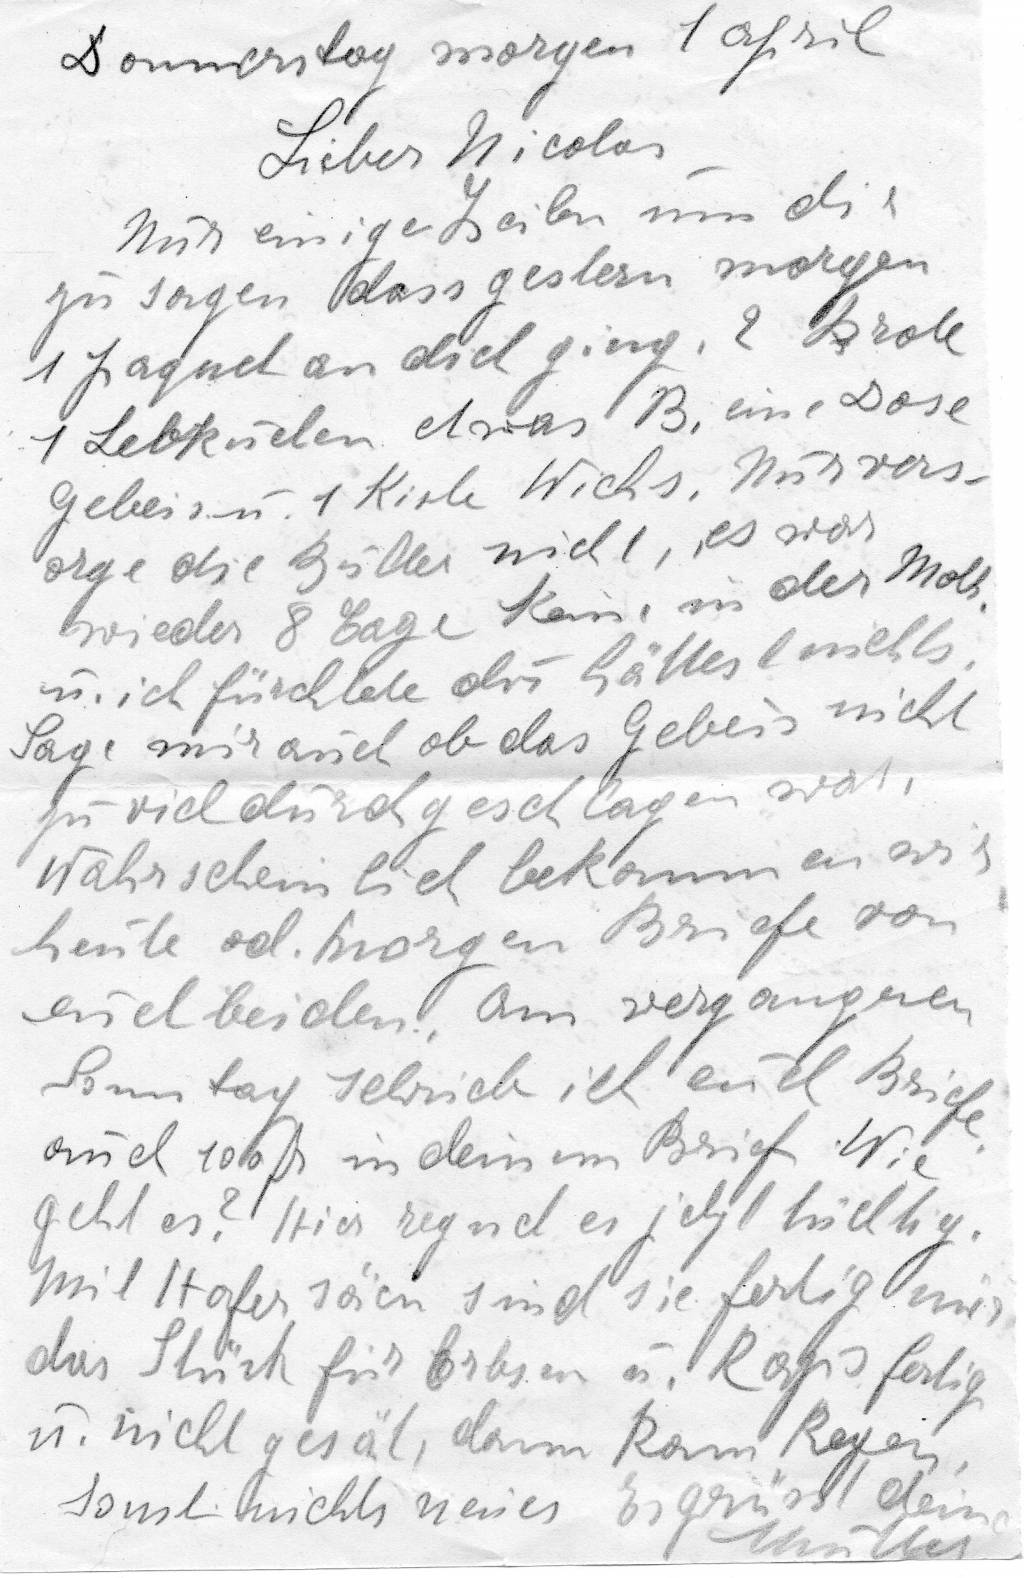 Donnerstag morgen 1 april
Lieber Nicolas
Nur einige Zeilen um dir
zu sagen dass gestern morgen
1 Paquet an dich ging. 2 Brote
1 Lebkuchen etwas B. eine Dose
Gebeis u. 1 Kiste Wichs. Nur vers-
orge die Butter nicht, es war
wieder 8 Tage kein. in der Molk.
u. ich fürchtete du hättest nichts.
Sage mir auch ob das Gebeis nicht
zu viel durchgeschlagen war.
Wahrscheinlich bekommen wir
heute od. morgen Briefe von
euch beiden. Am vergangenen
Sonntag schrieb ich euch Briefe.
auch 100 fr in deinem Brief. Wie
geht es? Hier regnet es jetzt tüchtig.
Mit Hafer säen sind sie fertig nur
das Stück für Erbsen u. fertig
u. nicht gesät, dann kam Regen.
Sonst nichts neues Es grüsst deine
Mutter